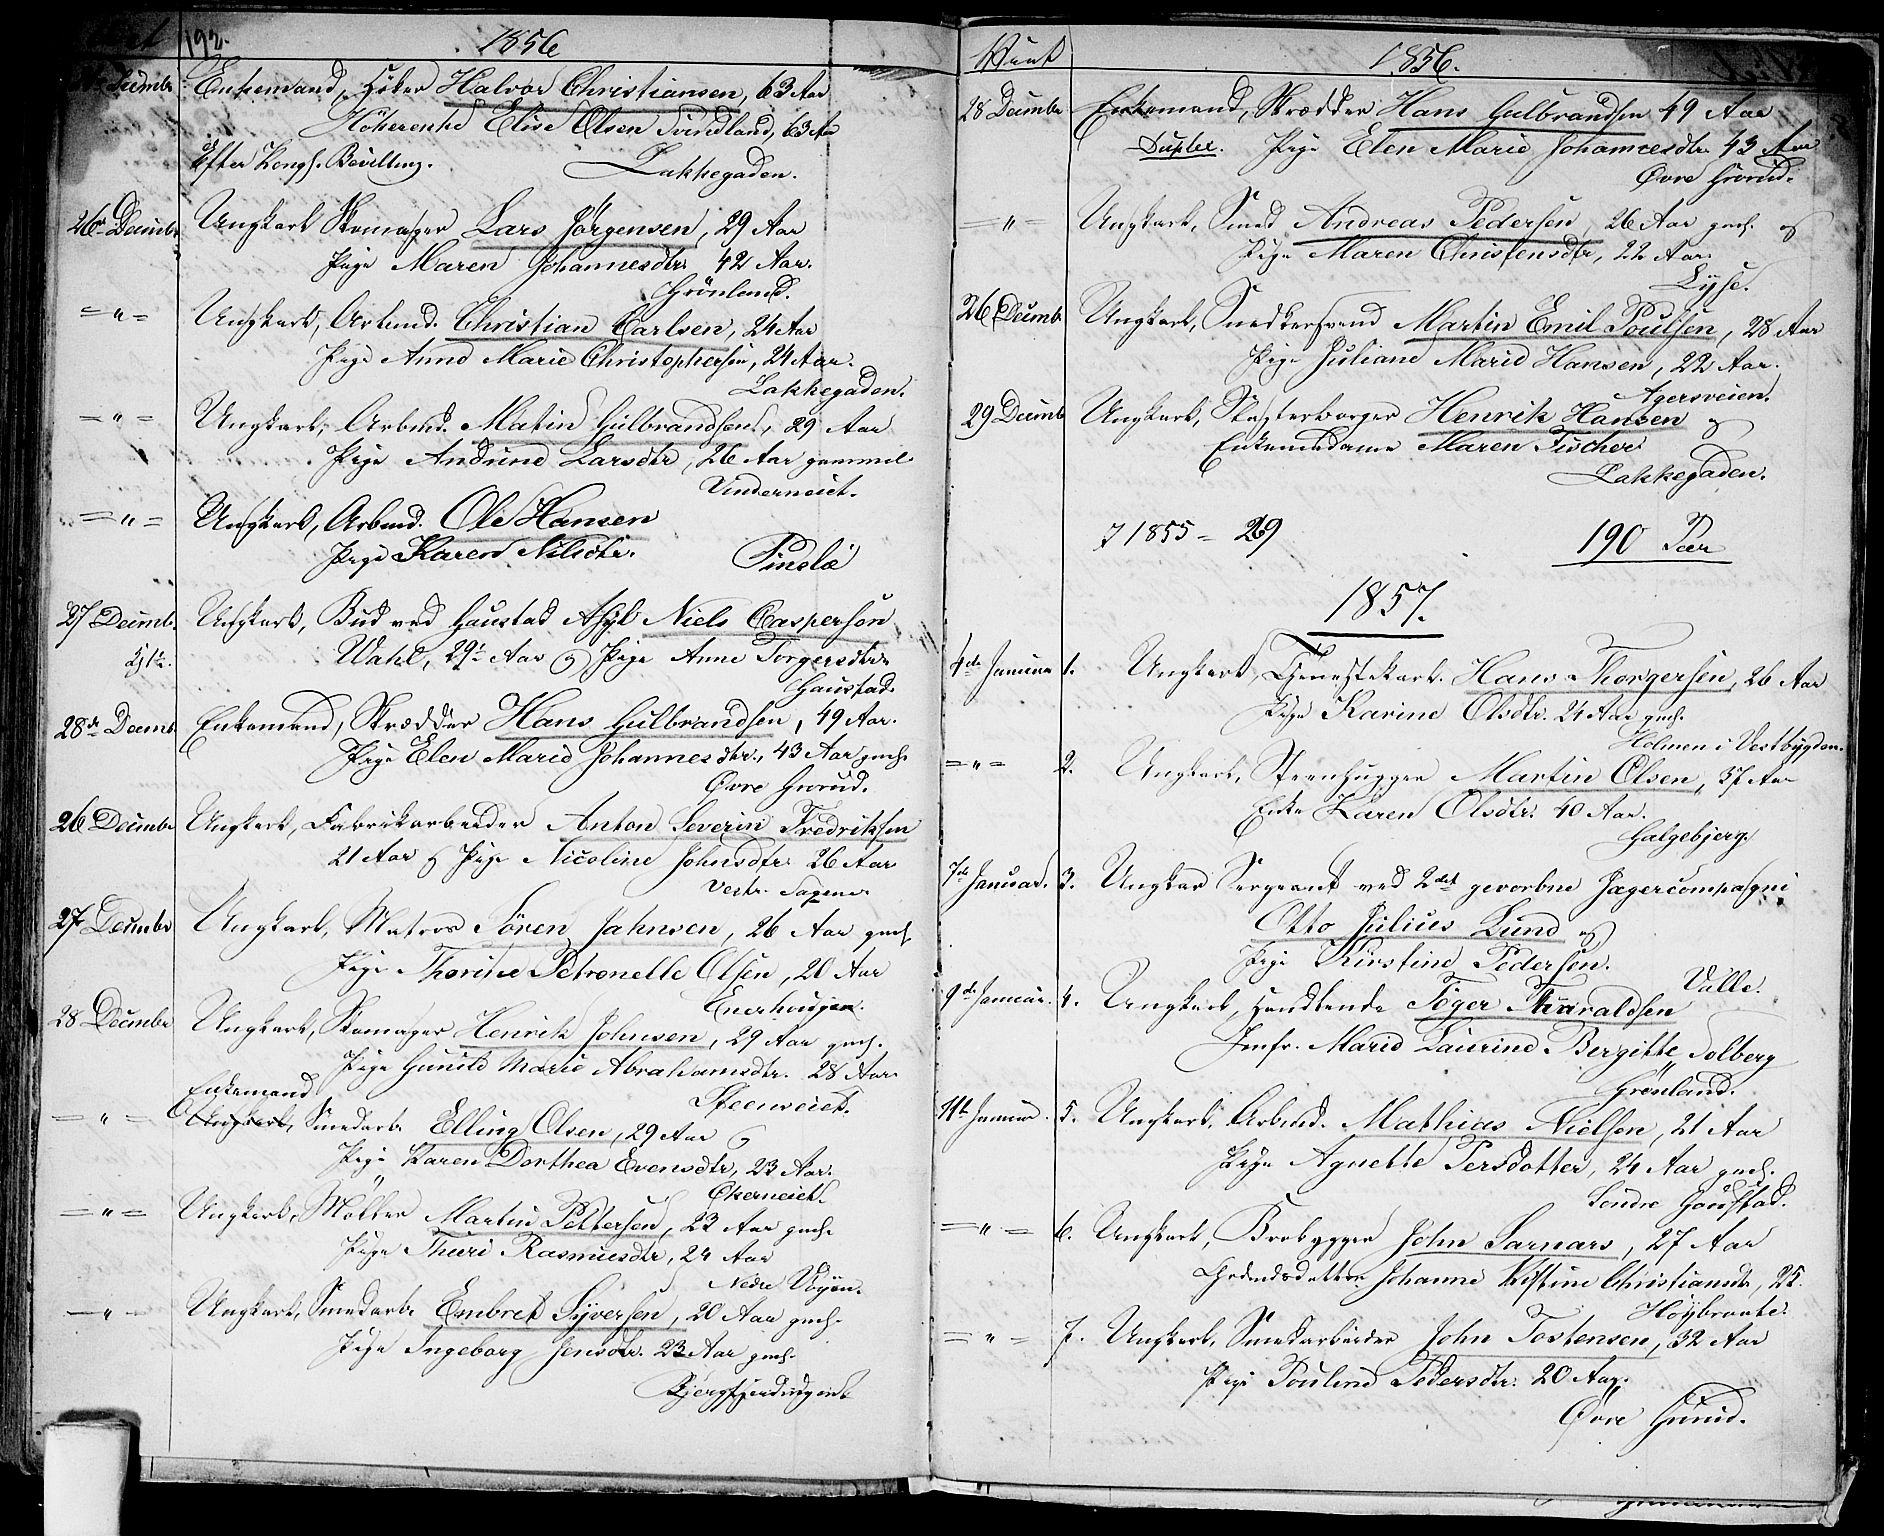 192. 1856
Decembr Enkemand, Höker Halvor Christiansen, 63 Aar
Hökerenke Elise Olsen Svindland, 63 Aar
Efter Kongl. Bevilling. Lakkegaden.
26de Decembr Ungkarl Skomager Lars Jörgensen, 29 Aar
Pige Maren Johannesdtr. 42 Aar.
Grönland.
= " = Ungkarl, Arbmd. Christian Carlsen, 24 Aar
Pige Anne Marie Christophersen, 24 Aar.
Lakkegaden.
= " = Ungkarl, Arbmd. Matin Gulbrandsen, 29 Aar
Pige Andrine Larsdtr, 26 Aar gammel
Vinderneiet.
= " = Ungkarl, Arbmd. Ole Hansen
Pige Karen Nilsdtr.
Pinslö
27 Decembr. Ungkarl, Bud ved Gaustad Asyl Niels Caspersen
Wahl, 29 Aar og Pige Anne Torgersdtr.
Gaustad.
28de Decemb. Enkemand, Skrædder Hans Gulbrandsen, 49 Aar.
Pige Elen Marie Johannesdtr., 43 Aar gml.
Øvre Grorud.
26 Decembr Ungkarl, Fabrikarbeider Anton Severin Fredriksen
21 Aar og Pige Nicoline Johnsdtr. 26 Aar
Vestr. Sagene.
27 Decembr Ungkarl, Matros Sören Jahnsen, 26 Aar gml.
Pige Thorine Petronelle Olsen, 20 Aar
Enerhougen.
28 Decembr Ungkarl, Skomager Henrik Johnsen, 29 Aar gml.
Pige Gunild Marie Abrahamsdtr. 28 Aar
Steenneiet.
Enkemand
= " = Ungkarl, Smedarb. Elling Olsen, 29 Aar og
Pige Karen Dorthea Evensdtr, 23 Aar.
Økerneiet.
= " = Ungkarl, Möller Martin Pettersen, 23 Aar gml.
Pige Thuri Rasmusdtr, 24 Aar
Nedre Vöyen.
= " = Ungkarl, Smedarb. Embret Syversen, 20 Aar gml.
Pige Ingeborg Jensdtr. 23 Aar gml.
1856.
28 Decembr Enkemand, Skrædder Hans Gulbrandsen 49 Aar
Duplee. Pige Elen Marie Johannesdtr. 43 Aar
Øvre Grorud.
= " = Ungkarl, Smed Andreas Pedersen, 26 Aar gml. og
Pige Maren Christensdtr, 22 Aar.
Lyse.
26 Decemb. Ungkarl, Snedkersvend Martin Emil Poulsen, 28 Aar
Pige Juliane Marie Hansen, 22 Aar.
Agersveien.
29 Decemb. Ungkarl, Slagterborger Henrik Hansen og
Enkemadame Maren Fischer
Lakkegaden.
1855 = 29 190 Par
1857.
4de Januar 1. Ungkarl, Tjenestekarl. Hans Thorgersen, 26 Aar
Pige Karine Olsdtr. 24 Aar gml.
Holmen i Vestbygden.
= " = 2. Ungkarl, Steenhugger Martin Olsen, 37 Aar
Enke Karen Olsdtr. 40 Aar.
Galgebjerg.
7de Januar. 3. Ungkar Sergeant ved 2det gevorbne Jægercompagni
Otto Julius Lund og
Pige Kirstine Pedersen.
Valle.
9de Januar. 4. Ungkarl, Handlende Töger Tharaldsen
Jomfr. Marie Laurine Bergitte Solberg
Grönland.
11te Januar. 5. Ungkarl. Arbmd. Mathias Nielsen, 21 Aar
Pige Agnette Persdotter, 24 Aar gml.
Söndre Gouistad.
= " = 6. Ungkarl, Brobygger John Sarnars, 27 Aar
Johanne Kistine Christiansdtr, 25.
Höybraate.
= " = 7. Ungkarl, Smedarbeider John Tostensen, 32 Aar
Pige Pouline Pedersdtr. 20 Aar.
Øvre Grorud.